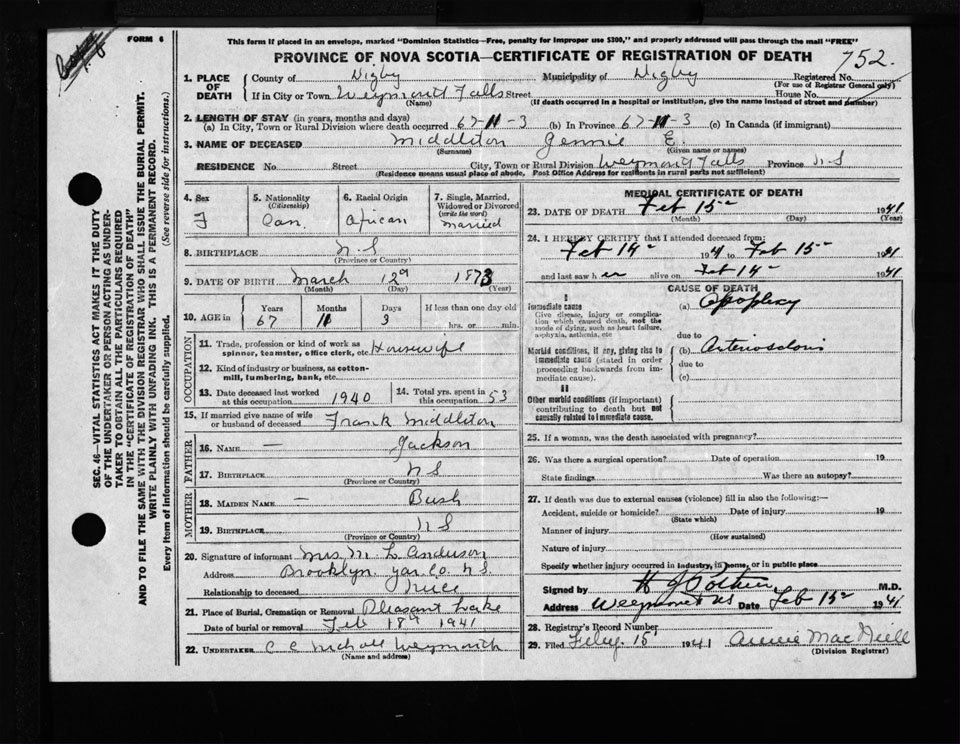 This form if placed in an envelope, marked "Dominion Statistics—Free, penalty for improper use $300," and properly addressed will pass through the mail "FREE"
FORM 6
PROVINCE OF NOVA SCOTIA—CERTIFICATE OF REGISTRATION OF DEATH
752.
1. PLACE OF DEATH
County of Digby Municipality of Digby Registered No.
(For use of Registrar General only)
If in City or Town Weymouth Falls Street House No.
(Name) (If death occurred in a hospital or institution, give the name instead of street and number)
2. LENGTH OF STAY (in years, months and days)
(a) In City, Town or Rural Division where death occurred 67-11-3 (b) In Province 67-11-3 (c) In Canada (if immigrant)
3. NAME OF DECEASED Middleton Jennie E.
(Surname) (Given name or names)
RESIDENCE No. Street City, Town or Rural Division Weymouth Falls Province N S
(Residence means usual place of abode. Post Office Address for residents in rural parts not sufficient)
4. Sex F
5. Nationality (Citizenship) Can.
6. Racial Origin African
7. Single, Married, Widowed or Divorced (write the word) Married
8. BIRTHPLACE N S
(Province or Country)
9. DATE OF BIRTH March 12th 1873
(Month) (Day) (Year)
10. AGE in Years Months Days If less than one day old
67 11 3 hrs. or min.
OCCUPATION
11. Trade, profession or kind of work as spinner, teamster, office clerk, etc. Housewife
12. Kind of industry or business, as cotton-mill, lumbering, bank, etc.
13. Date deceased last worked at this occupation 1940
14. Total yrs. spent in this occupation 53
15. If married give name of wife or husband of deceased Frank Middleton
FATHER
16. NAME — Jackson
17. BIRTHPLACE N S
(Province or Country)
MOTHER
18. MAIDEN NAME — Bush
19. BIRTHPLACE N S
(Province or Country)
20. Signature of informant Mrs. M. L. Anderson
Address Brooklyn. Yar. Co. N S.
Relationship to deceased Niece
21. Place of Burial, Cremation or Removal Pleasant Lake
Date of burial or removal Feb 18th 1941
22. UNDERTAKER C C Nichols Weymouth
(Name and address)
MEDICAL CERTIFICATE OF DEATH
23. DATE OF DEATH Feb 15 1941
(Month) (Day) (Year)
24. I HEREBY CERTIFY that I attended deceased from:
Feb 14 1941 to Feb 15 1941
and last saw her alive on Feb 14 1941
CAUSE OF DEATH
I
Immediate cause
Give disease, injury or complication which caused death, not the mode of dying, such as heart failure, asphyxia, asthenia, etc
(a) Apoplexy
due to
Morbid conditions, if any, giving rise to immediate cause (stated in order proceeding backwards from immediate cause).
(b)
due to
(c)
II
Other morbid conditions (if important) contributing to death but not causally related to immediate cause.
25. If a woman, was the death associated with pregnancy?
26. Was there a surgical operation? Date of operation 19
State findings Was there an autopsy?
27. If death was due to external causes (violence) fill in also the following:—
Accident, suicide or homicide? Date of injury 19
(State which)
Manner of injury
(How sustained)
Nature of injury
Specify whether injury occurred in industry, in home, or in public place
Signed by M.D.
Address Weymouth NS Date Feb 15 1941
28. Registrar's Record Number
29. Filed Feby. 15 1941 Annie MacNeill
(Division Registrar)
SEC. 46—VITAL STATISTICS ACT MAKES IT THE DUTY
OF THE UNDERTAKER OR PERSON ACTING AS UNDER-
TAKER TO OBTAIN ALL THE PARTICULARS REQUIRED
IN THE "CERTIFICATE OF REGISTRATION OF DEATH"
AND TO FILE THE SAME WITH THE DIVISION REGISTRAR WHO SHALL ISSUE THE BURIAL PERMIT.
WRITE PLAINLY WITH UNFADING INK. THIS IS A PERMANENT RECORD.
Every item of information should be carefully supplied. (See reverse side for instructions.)